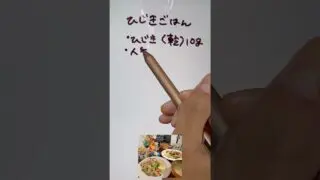 ひじきごはん
・ひじき(乾)10g
・人